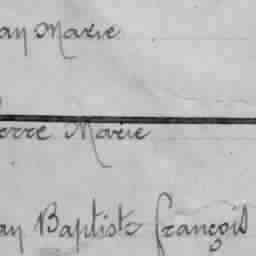 an Marie
erre Marie
an Baptiste françois